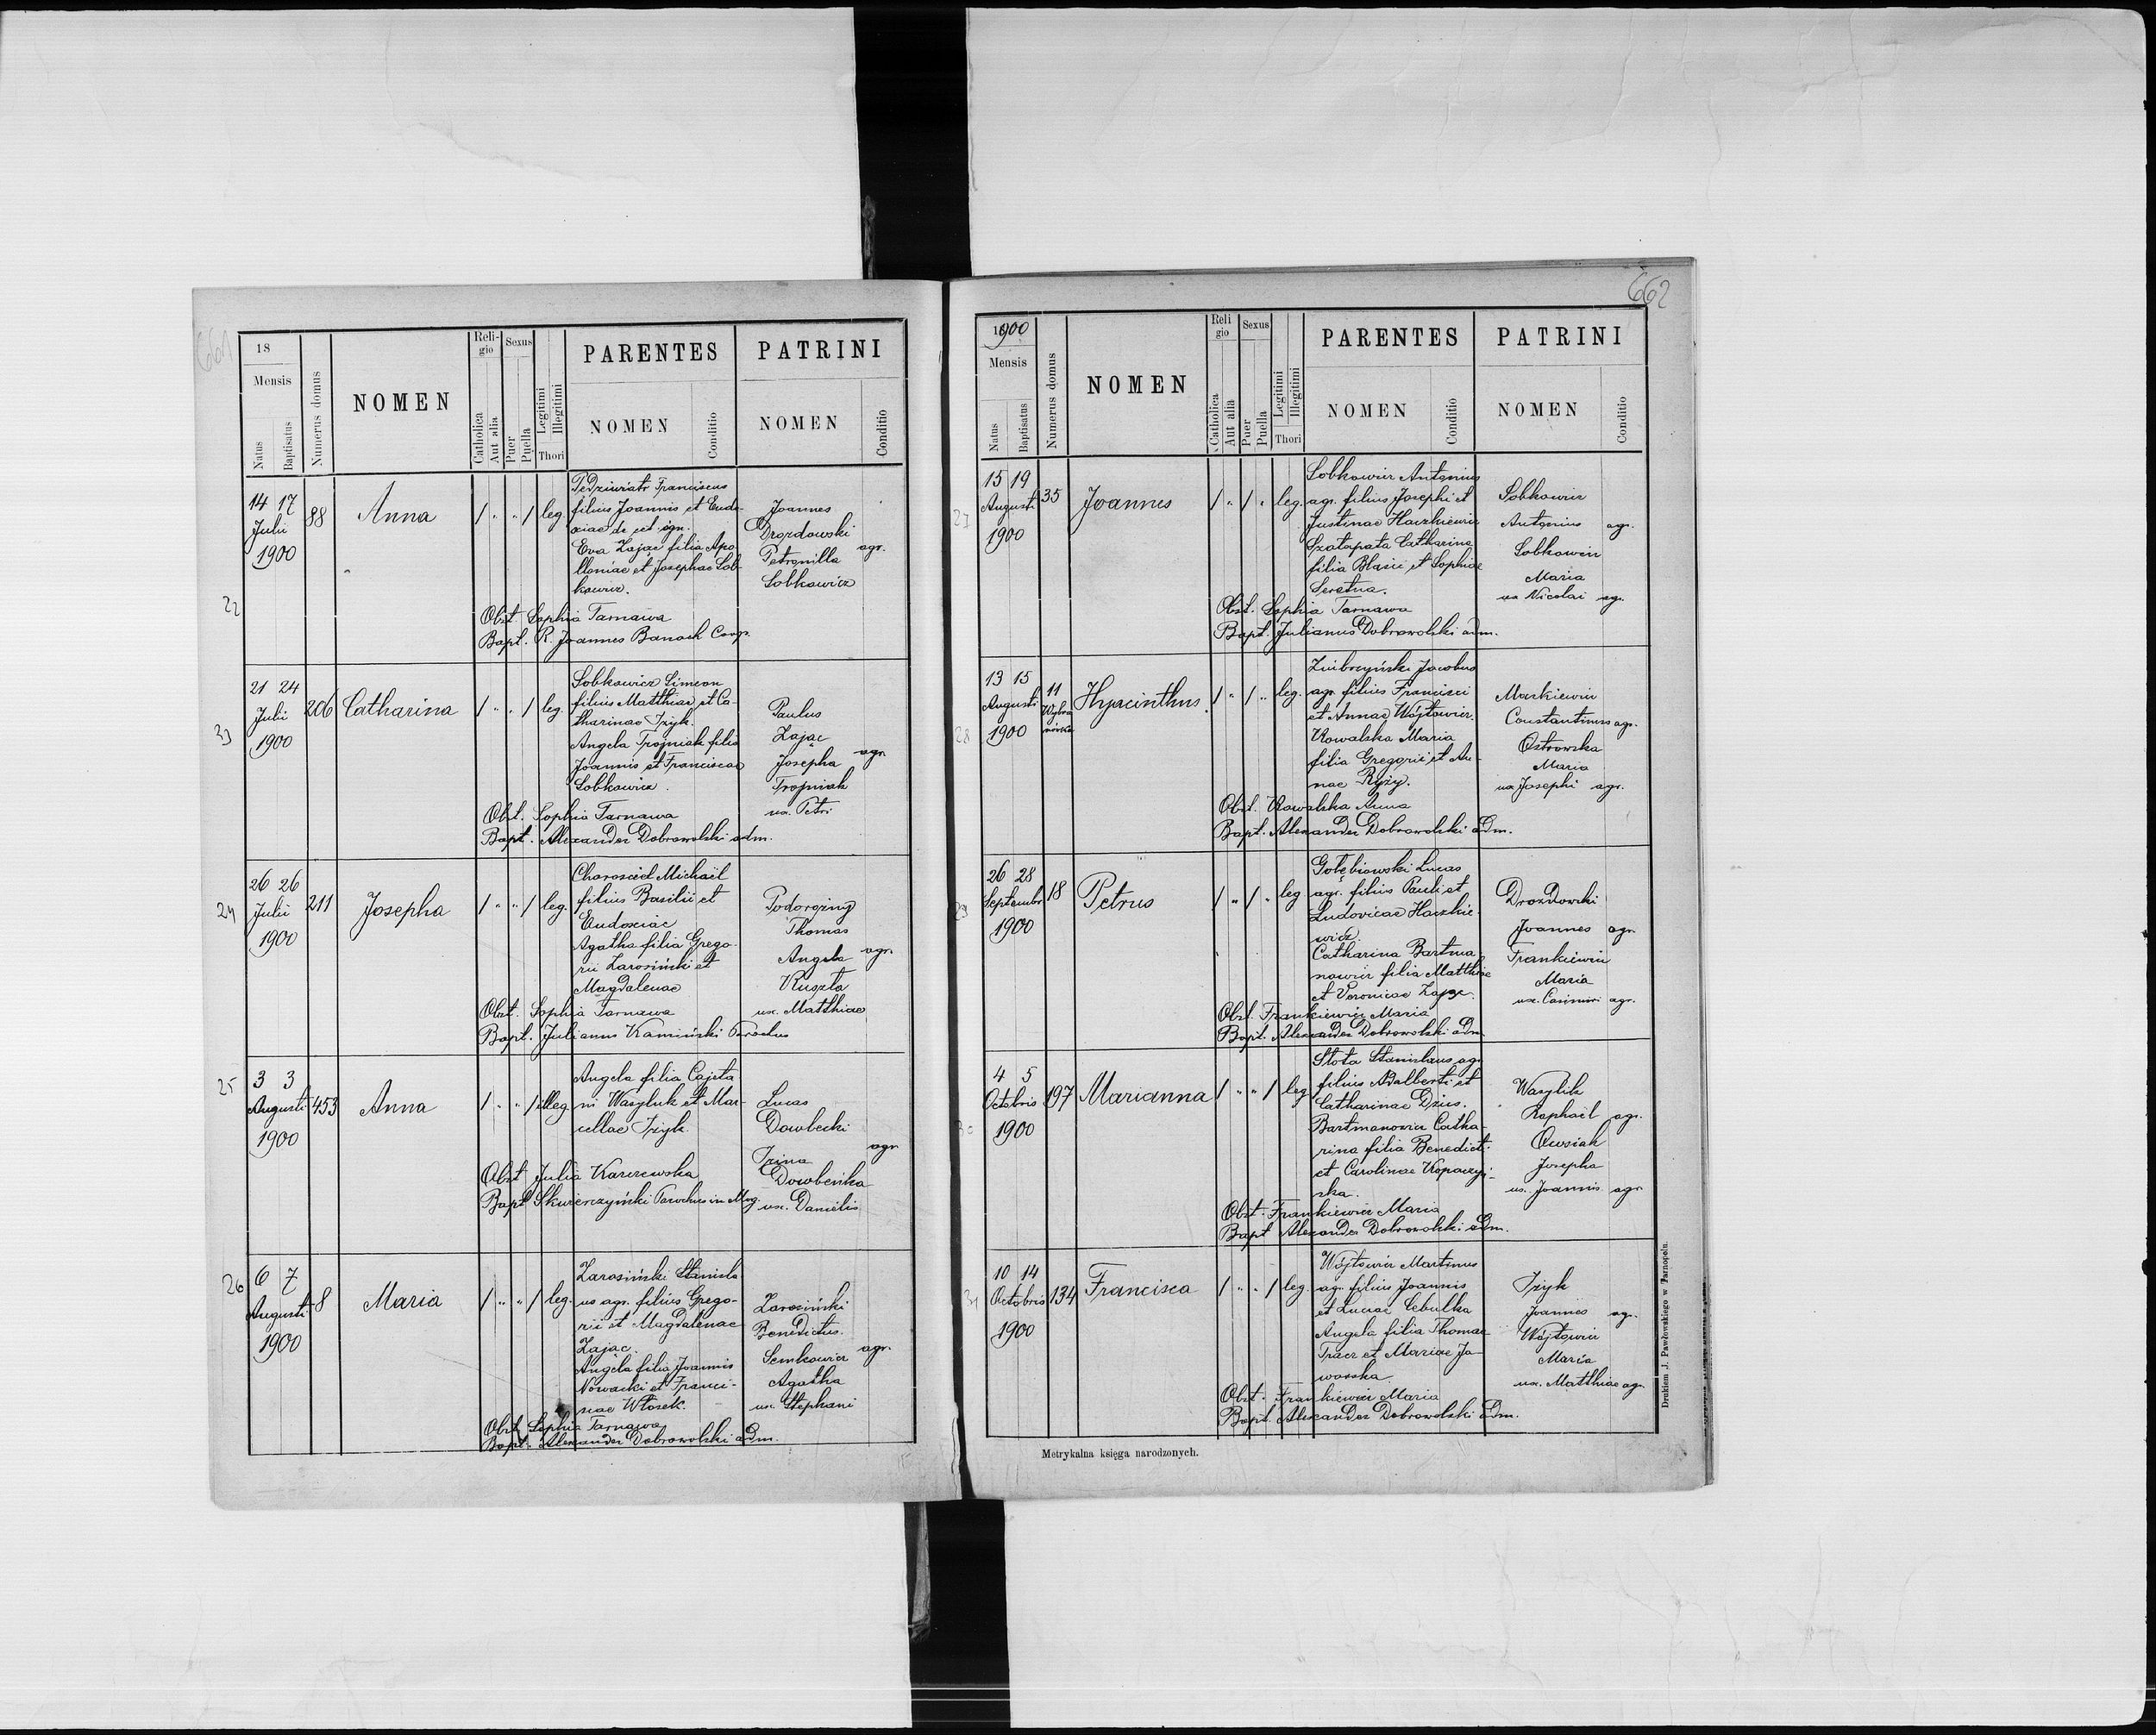 661
18
Mensis
Natus
Baptisatus
Numerus domus
NOMEN
Reli-
gio
Catholica
Aut alia
Sexus
Puer
Puella
Legitimi
Illegitimi
Thori
PARENTES
NOMEN
Conditio
PATRINI
NOMEN
Conditio
22
14 17
Julii
1900
88
Anna
/ " " / leg.
Pędziwiatr Franciscus
filius Joannis et Eudo-
xiae de
Eva Zając filia Apo
lloniae et Josephae Sob-
kowicz.
Joannes
Drozdowski
Petronilla
Sobkowicz
agr.
Obst. Sophia Tarnawa
Bapt. R. Joannes Banach Coop.
23
21 24
Julii
1900
206
Catharina
/ " " / leg.
Sobkowicz Simeon
filius Matthiae et Ca-
tharinae Irzyk.
Angela Trojniak filia
Joannis et Franciscae
Sobkowicz.
Paulus
Zając
Josepha
Trojniak
ux. Petri
agr.
Obst. Sophia Tarnawa
Bapt. Alexander Dobrowolski adm.
24
26 26
Julii
1900
211
Josepha
/ " " / leg.
Charościel Michael
filius Basilii et
Eudoxiae
Agatha filia Grego-
rii Zarosiński et
Magdalenae
Podorożny
Thomas
Angela
Kuszta
ux. Matthiae
agr.
Obst. Sophia Tarnawa
Bapt. Julianus Kamiński Parochus
25
3 3
Augusti
1900
453
Anna
/ " " / illeg.
Angela filia Cajeta
ni Wasyluk et Mar-
cellae Irzyk.
Lucas
Dowbecki
Irina
Dowbeńka
ux. Danielis
agr
Obst Julia Karczewska
Bapt Skwierczyński Parochus in Mog.
26
6 7
Augusti
1900
8
Maria
/ " " / leg.
Zarosiński Stanisla
us agr. filius Grego-
rii et Magdalenae
Zając.
Angela filia Joannis
Nowacki et Franci-
scae Włosek.
Zarosiński
Benedictus.
Semkowicz
Agatha
ux. Stephani
agr.
Obst Sophia Tarnawa
Bapt. Alexander Dobrowolski adm.
662
1900
Mensis
Natus
Baptisatus
Numerus domus
NOMEN
Reli
gio
Catholica
Aut alia
Sexus
Puer
Puella
Legitimi
Illegitimi
Thori
PARENTES
NOMEN
Conditio
PATRINI
NOMEN
Conditio
27
15 19
Augusti
1900
35
Joannes
/ " / " leg.
Sobkowicz Antonius
agr. filius Josephi et
Justinae Haczkiewicz
Szatapata Catharina
filia Blasii et Sophiae
Seretna.
Sobkowicz
Antonius agr.
Sobkowicz
Maria
ux Nicolai agr.
Obst. Sophia Tarnawa
Bapt. Julianus Dobrowolski adm.
28
13 15
Augusti
1900
11
Hyacinthus.
/ " / " leg.
Zimbrzyński Jacobus
agr. filius Francisci
et Annae Wójtowicz.
Kowalska Maria
filia Gregorii et An-
nae Ryży.
Markiewicz
Constantinus agr.
Ostrowska
Maria
ux Josephi agr.
Obst. Kowalska Anna
Bapt. Alexander Dobrowolski adm.
29
26 28
Septembr
1900
18
Petrus
/ " / " leg
Gołębiowski Lucas
agr. filius Pauli et
Ludovicae Haczkie-
wicz.
Catharina Bartma
nowicz filia Matthiae
et Veronicae Zając.
Drozdowski
Joannes agr.
Frankiewicz
Maria
ux. Casimiri agr.
Obst. Frankiewicz Maria
Bapt. Alexander Dobrowolski adm
30
4 5
Octobris
1900
197
Marianna
/ " " / leg
Słota Stanislaus agr
filius Adalberti et
Catharinae Dzius.
Bartmanowicz Catha-
rina filia Benedicti
et Carolinae Kopaczyń-
ska.
Wasylik
Raphael agr.
Owsiak
Josepha
ux. Joannis agr
Obst. Frankiewicz Maria
Bapt Alexander Dobrowolski adm.
31
10 14
Octobris
1900
134
Francisca
/ " " / leg.
Wójtowicz Martinus
agr. filius Joannis
et Luciae Cebulka
Angela filia Thomae
Tracz et Mariae Ja-
worska.
Irzyk
Joannes agr.
Wójtowicz
Maria
ux. Matthiae agr.
Obst. Frankiewicz Maria
Bapt. Alexander Dobrowolski adm.
Metrykalna księga narodzonych.
Drukiem J. Pawłowskiego w Tarnopolu.